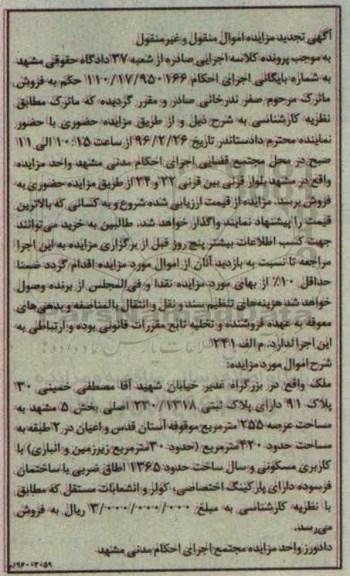 آگهی تجدید مزایده اموال منقول و غیرمنقول
به موجب پرونده کلاسه اجرایی صادره از شعبه ۳۷ دادگاه حقوقی مشهد
به شماره بایگانی اجرای احکام ۱۱۰/۱۷/۹۵۰۱۶۶ حکم به فروش
ماترک مرحوم صفر نذرخانی صادر و مقرر گردیده که ماترک مطابق
نظریه کارشناسی به شرح ذیل و از طریق مزایده حضوری با حضور
نماینده محترم دادستان در تاریخ ۹۶/۲/۲۶ از ساعت ۱۰:۱۵ الی ۱۱
صبح در محل مجتمع قضایی اجرای احکام مدنی مشهد واحد مزایده
واقع در مشهد بلوار قرنی بین قرنی ۲۲ و ۲۴ از طریق مزایده حضوری به
فروش برسد. مزایده از قیمت ارزیابی شده شروع و به کسانی که بالاترین
قیمت را پیشنهاد نمایند واگذار خواهد شد. طالبین به خرید می‌توانند
جهت کسب اطلاعات بیشتر پنج روز قبل از برگزاری مزایده به این اجرا
مراجعه تا نسبت به بازدید آنان از اموال مورد مزایده اقدام گردد ضمنا
حداقل ۱۰٪ از بهای مورد مزایده نقدا و فی‌المجلس از برنده وصول
خواهد شد هزینه‌های تنظیم سند و نقل و انتقال بالمناصفه و بدهی‌های
معوقه به عهده فروشنده و تخلیه تابع مقررات قانونی بوده و ارتباطی به
این اجرا ندارد. م الف ۱۲۴۱
شرح اموال مورد مزایده:
ملک واقع در بزرگراه غدیر خیابان شهید آقا مصطفی خمینی ۱۳۰
پلاک ۹۱ دارای پلاک ثبتی ۲۳۰/۱۳۱۸ اصلی بخش ۵ مشهد به
مساحت عرصه ۲۵۵ مترمربع موقوفه آستان قدس و اعیان در ۲ طبقه به
مساحت حدود ۴۲۰ مترمربع (حدود ۳۰ مترمربع زیرزمین و انباری) با
کاربری مسکونی و سال ساخت حدود ۱۳۶۵ اطاق ضربی با ساختمان
فرسوده دارای پارکینگ اختصاصی، کولر و انشعابات مستقل که مطابق
با نظریه کارشناسی به مبلغ ۳/۰۰۰/۰۰۰/۰۰۰ ریال به فروش
می‌رسد.
دادورز واحد مزایده مجتمع اجرای احکام مدنی مشهد